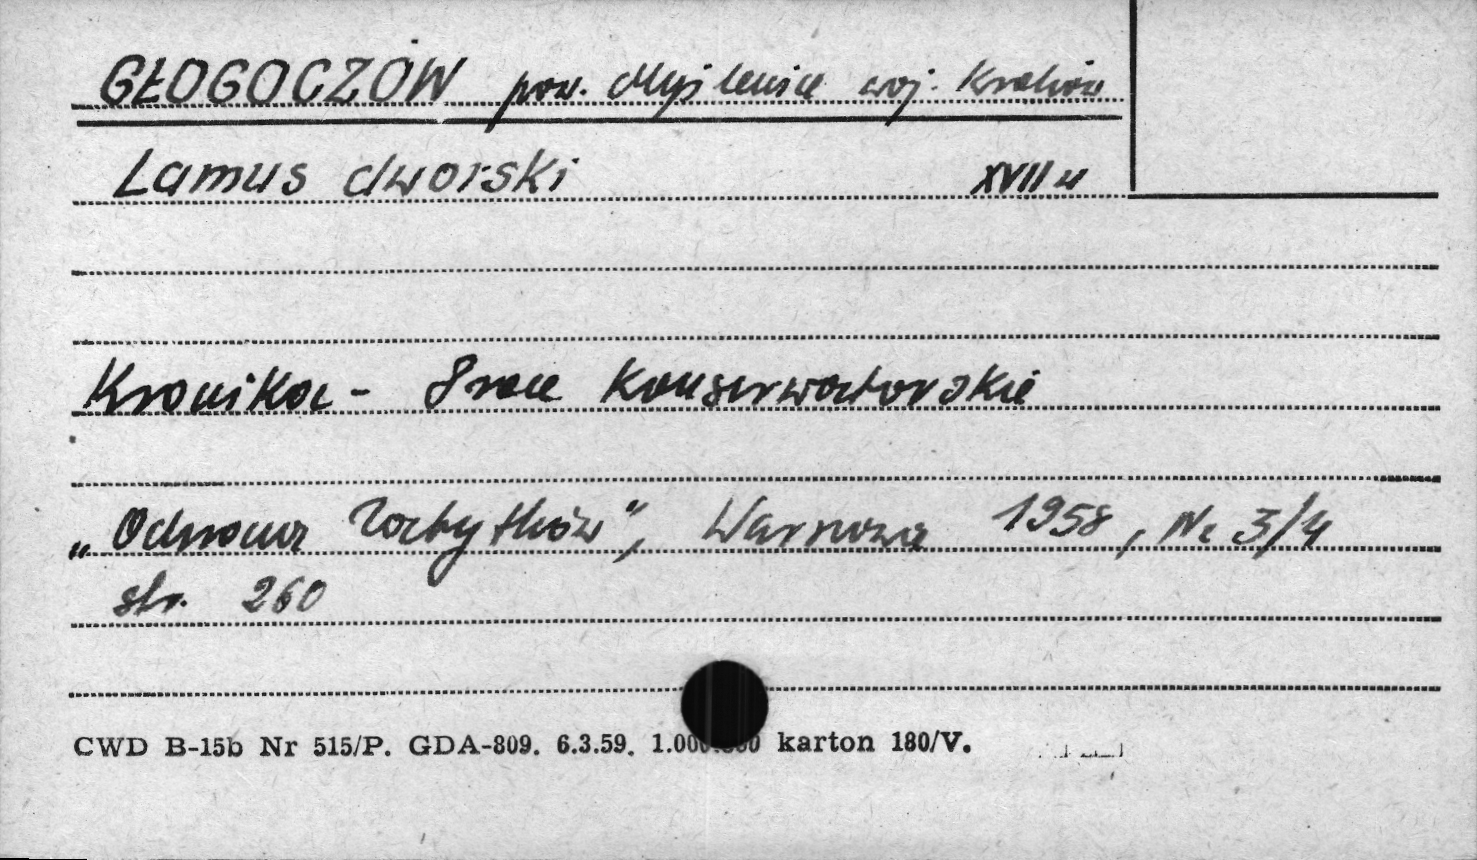 GŁOGOCZÓW pow. Myślenice woj. Kraków
Lamus dworski XVII w
Kronika - Prace Konserwatorskie
„Ochrona Zabytków”, Warszawa 1958, Nr 3/4
str. 260
CWD B-15b Nr 515/P. GDA-809. 6.3.59. 1.000.000 karton 180/V.